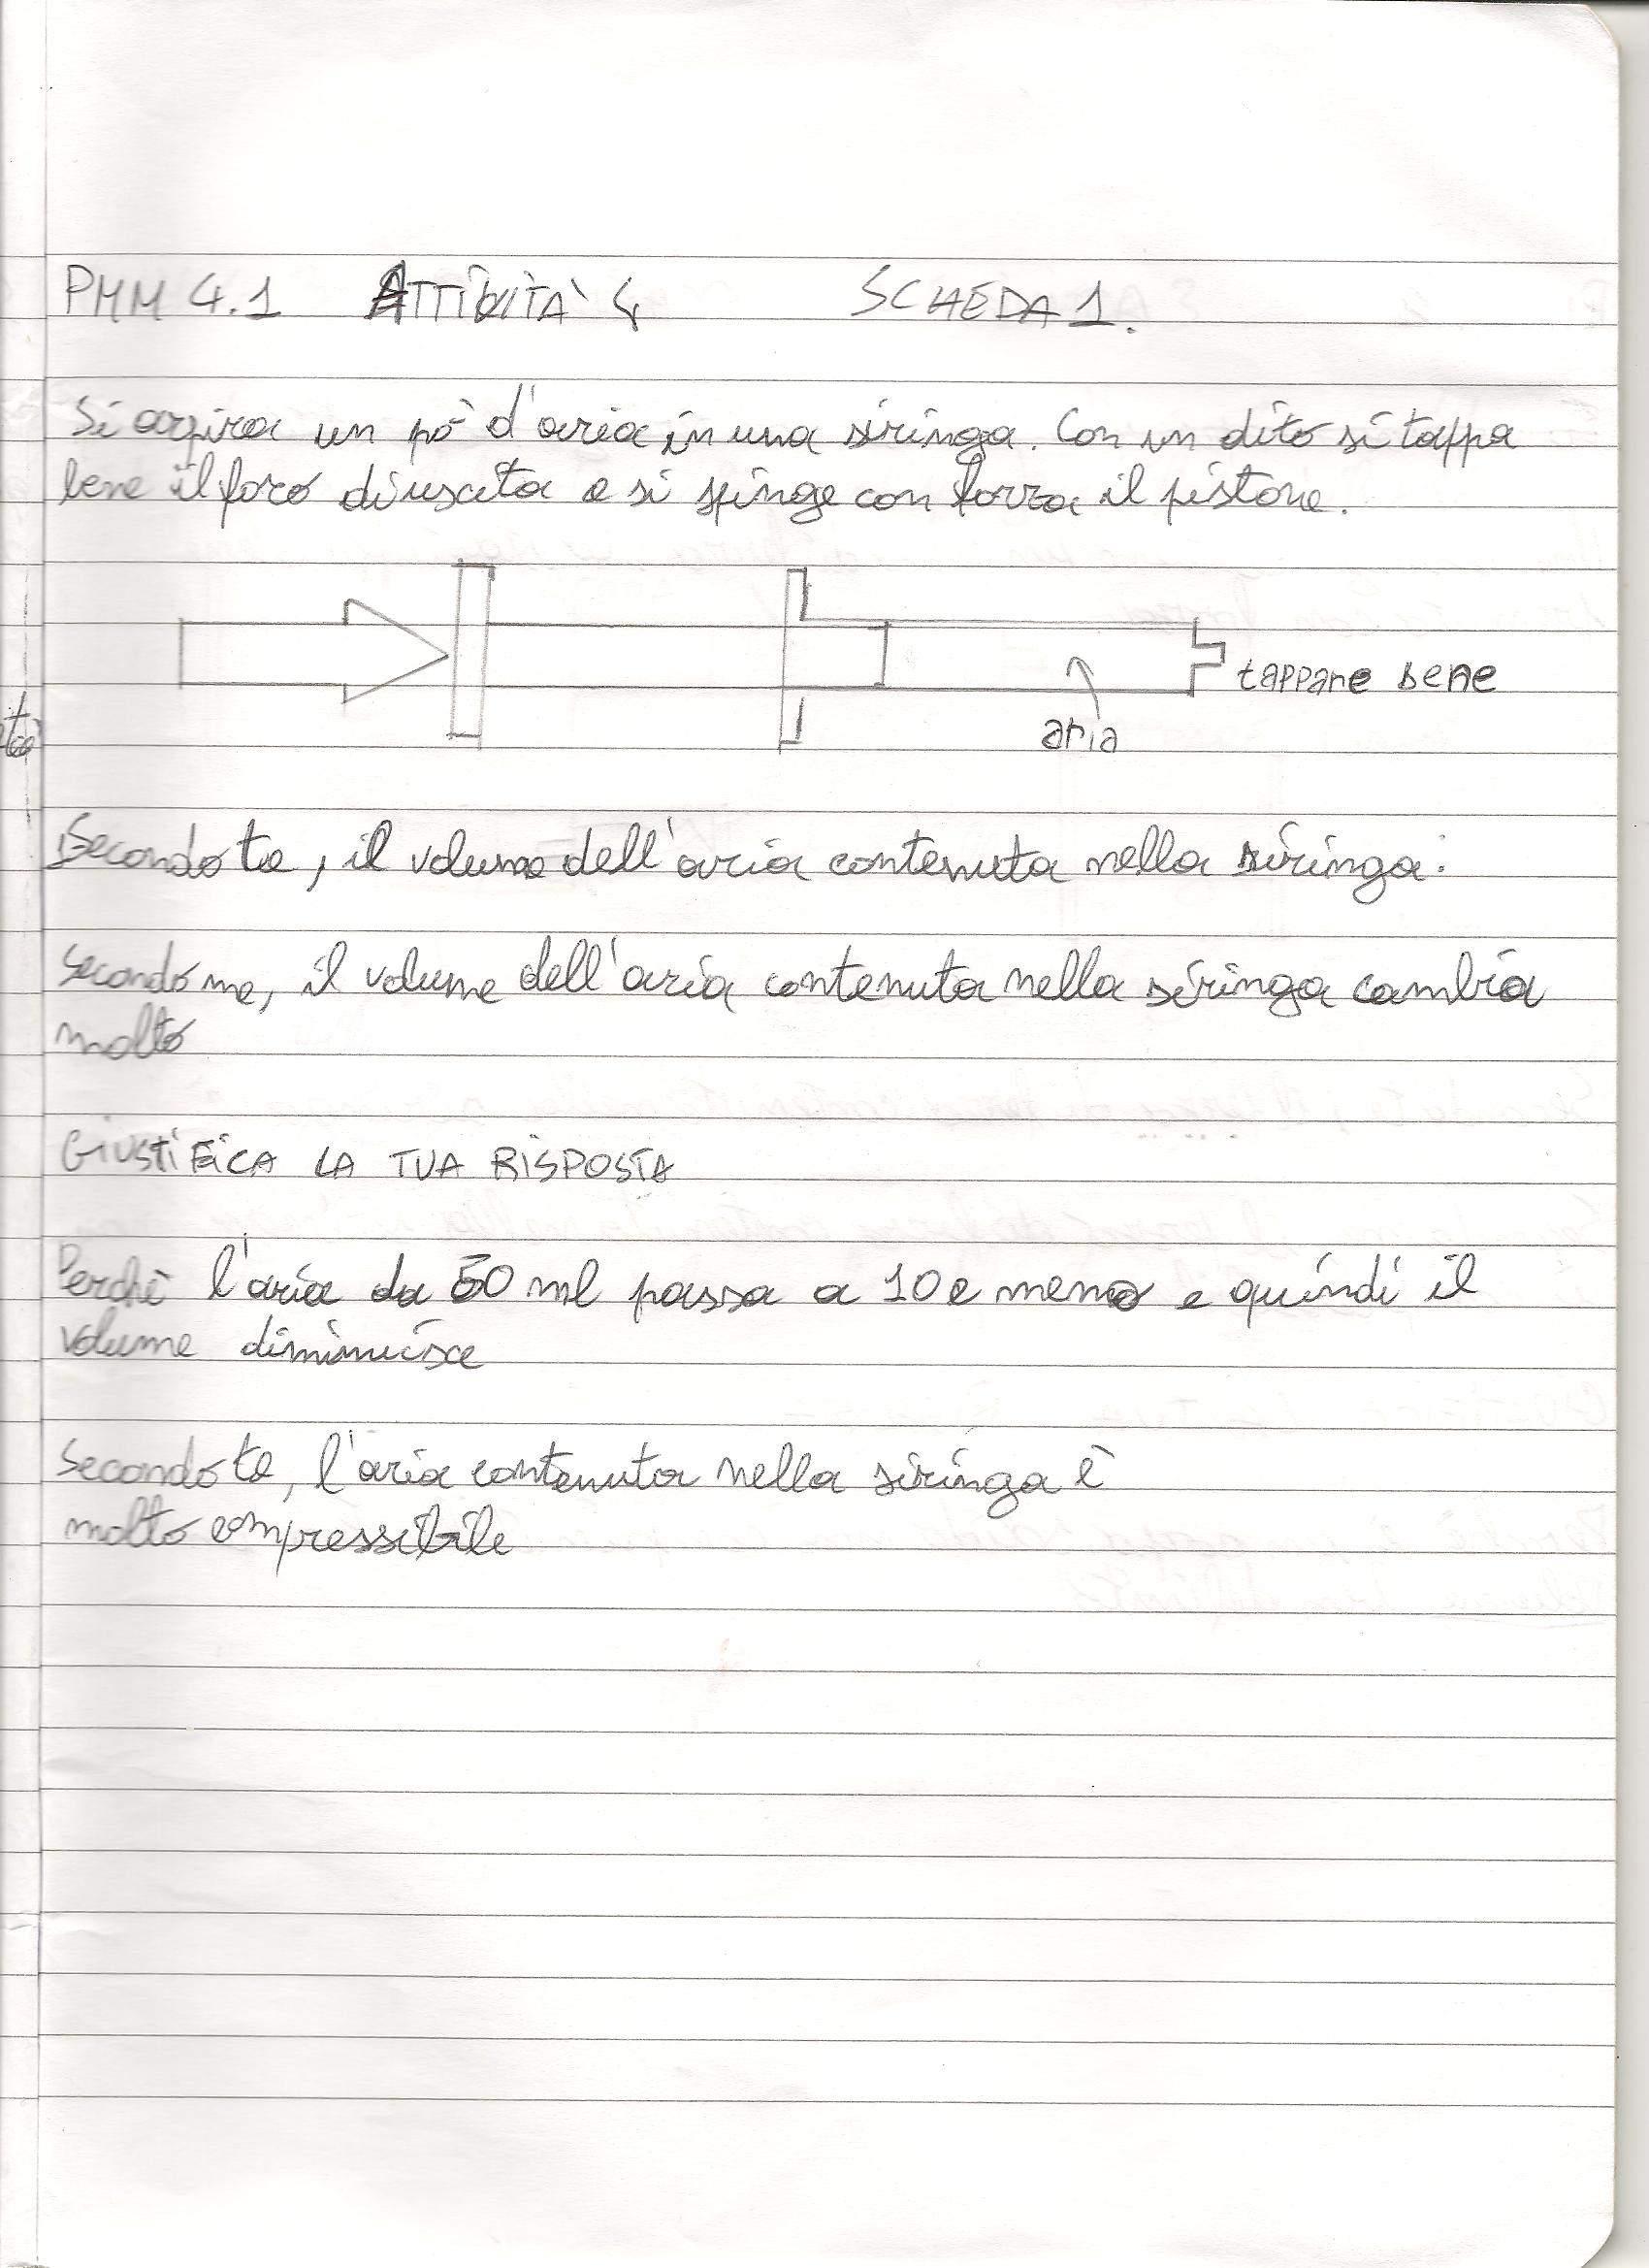 PMM 4.1 ATTIVITÀ 4 SCHEDA 1.
Si aspira un pò d'aria in una siringa. Con un dito si tappa
bene il foro di uscita e si spinge con forza il pistone.
tappare bene
aria
Secondo te, il volume dell'aria contenuta nella siringa:
secondo me, il volume dell'aria contenuta nella siringa cambia
molto
GIUSTIFICA LA TUA RISPOSTA
Perchè l'aria da 50 ml passa a 10 e meno e quindi il
volume diminuisce
secondo te, l'aria contenuta nella siringa è
molto compressibile